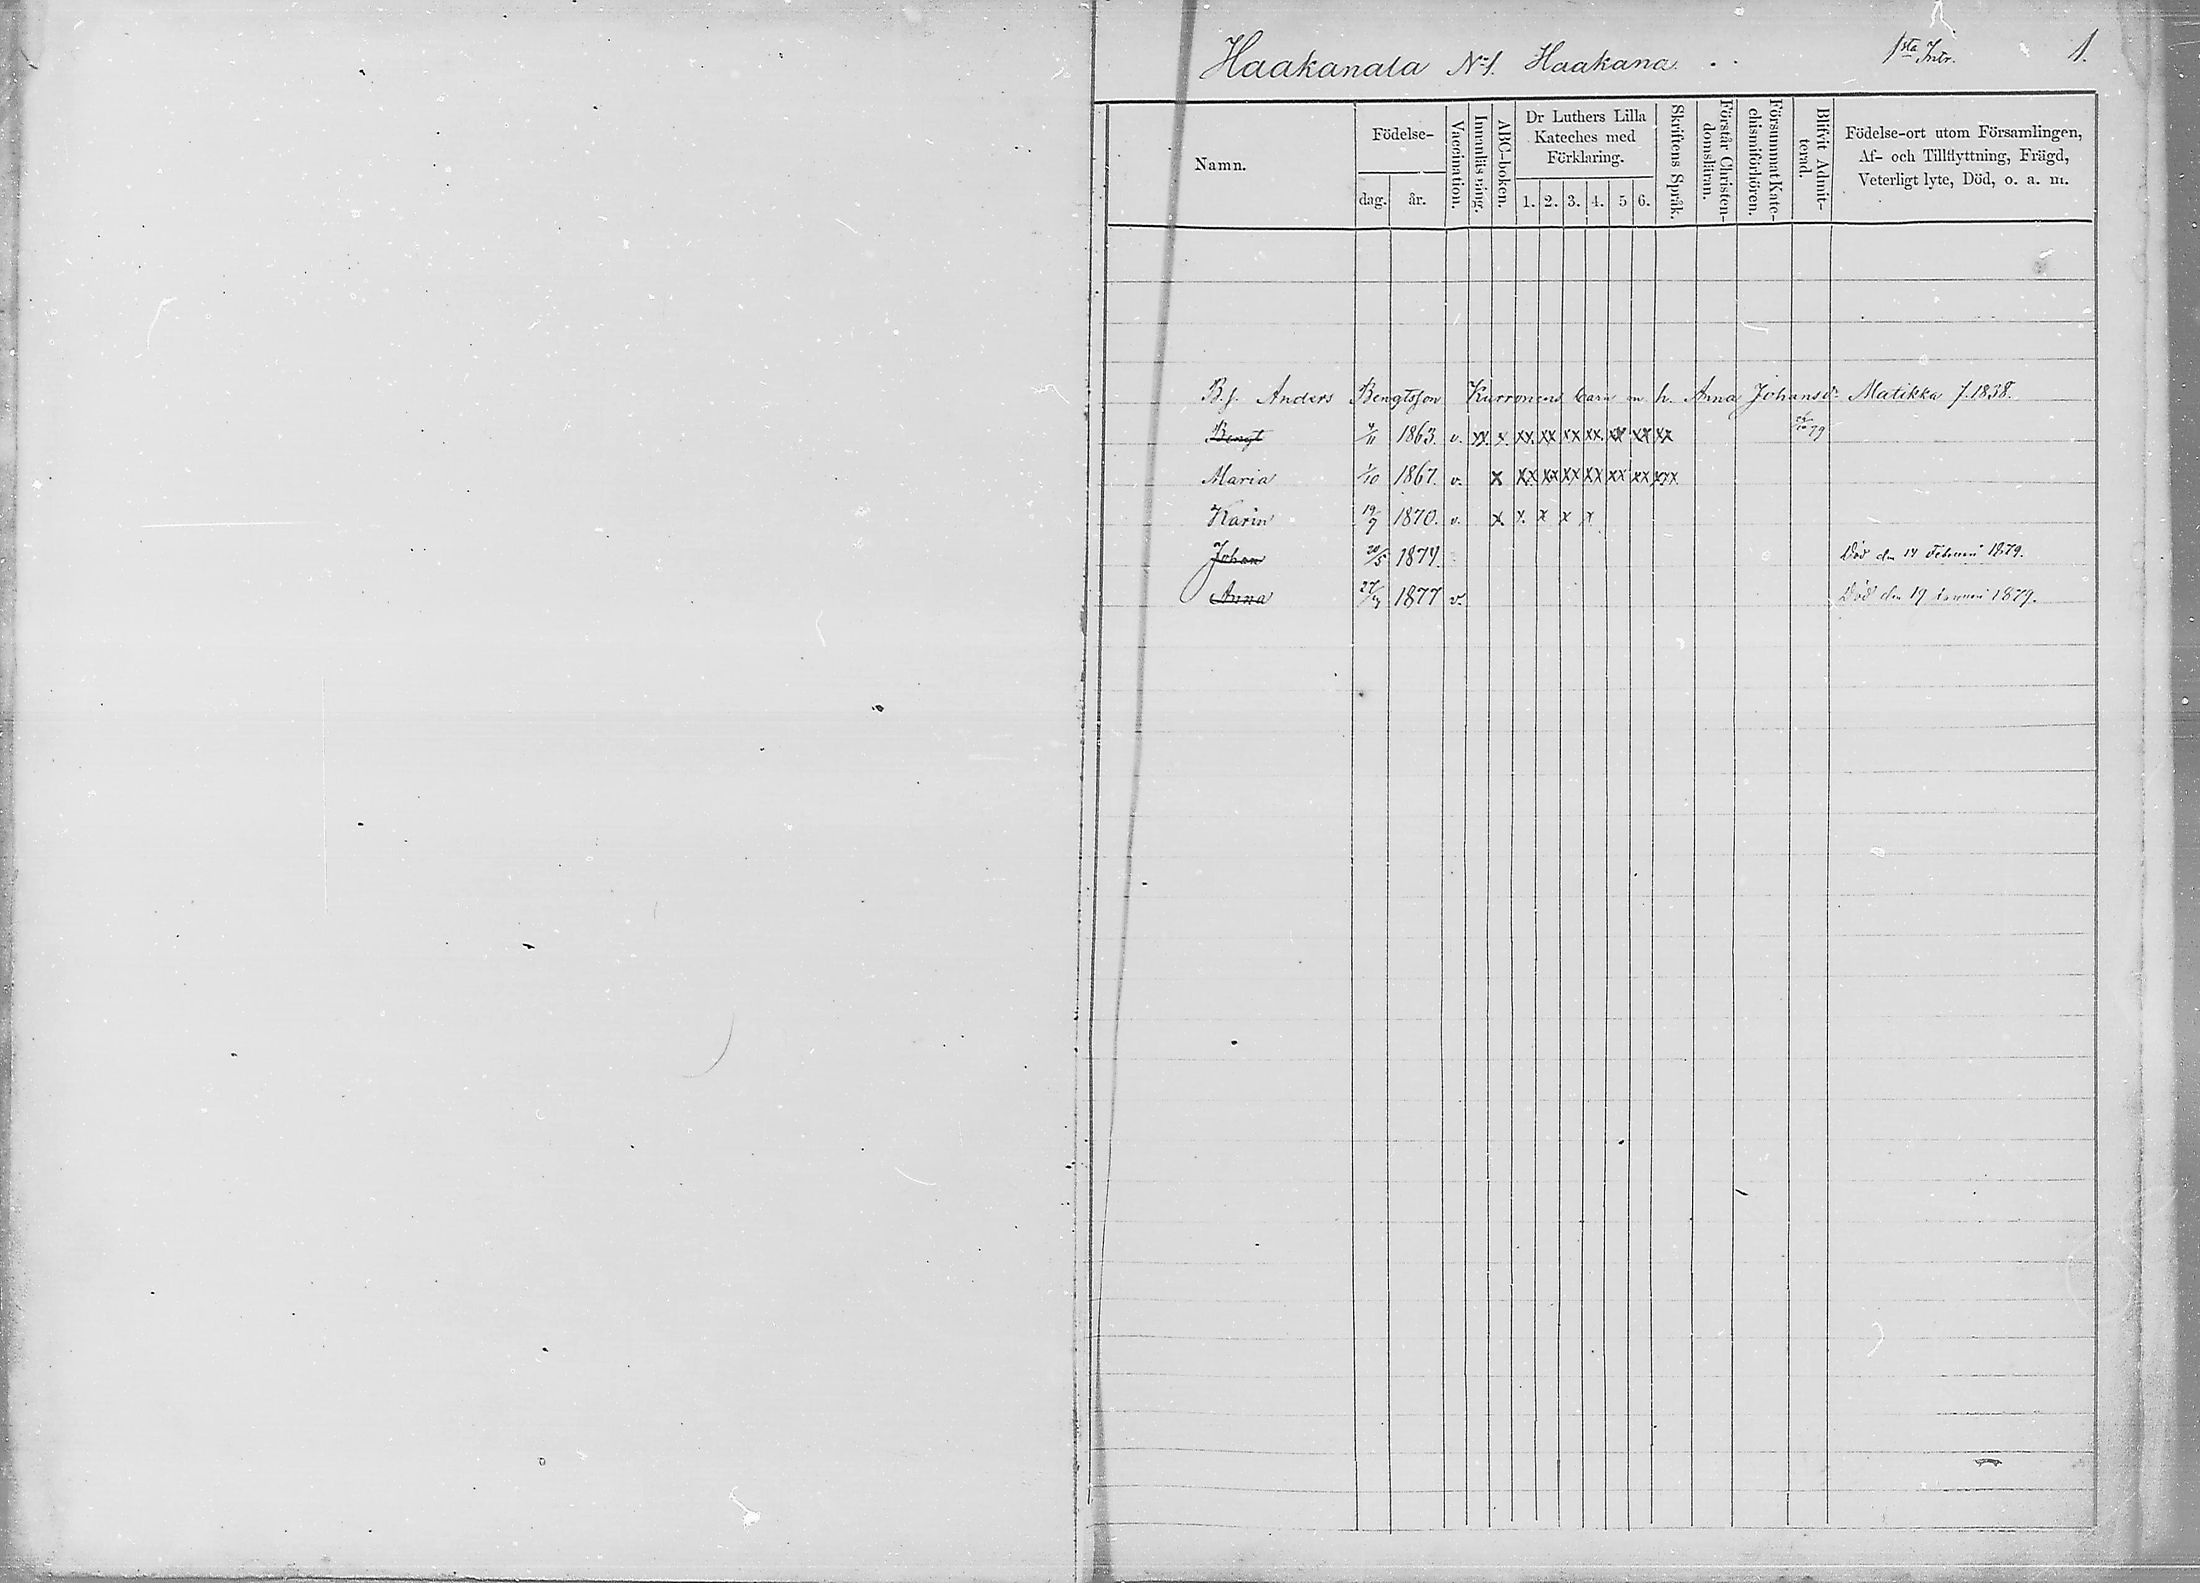 Haakanala No 1. Haakana. 1sta Intr. 1.
Namn. Födelse- dag. år. Vaccination. Innanläsning. ABC-boken. Dr Luthers Lilla Kateches med Förklaring. 1. 2. 3. 4. 5 6. Skriftens Språk. Förstår Christendomsläran. Försummat Katechismiförhören. Blifvit Admitterad. Födelse-ort utom Församlingen, Af- och Tillflyttning, Frägd, Veterligt lyte, Död, o. a. m.
B.f. Anders Bengtsson Kurronens barn m h. Anna Johansdr Matikka f. 1838.
Bengt 1863. v. xx x xx xx xx xx xx xx xx
Maria 1/10 1867. v. x xx xx xx xx xx xx xxx
Karin 19/7 1870. v. x x x x x
Johan 20/5 1874. Död den 14 Februari 1879.
Anna 1877 v. Död den 19 Januari 1879.